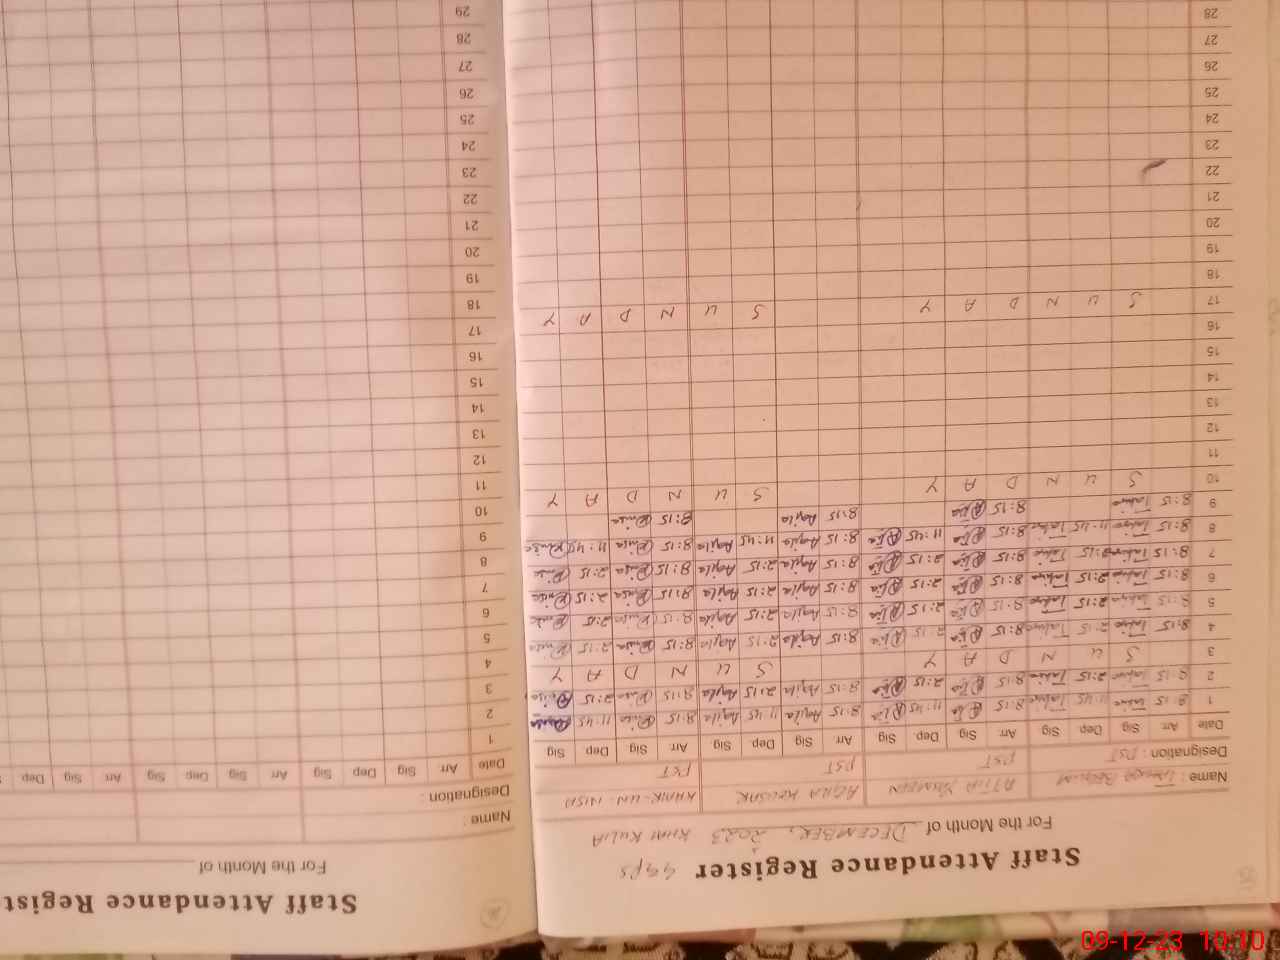 Staff Attendance Register GGPS
For the Month of DECEMBER, 2023 KHAI KULIA
Name : Tahira BEGUM ATTIA YASMEEN AQILA KOUSAR KHAIR-UN-NISA
Designation : PST PST PST PST
Date Arr Sig Dep Sig Arr Sig Dep Sig Arr Sig Dep Sig Arr Sig Dep Sig
1 8:15 11:45 8:15 Attia 11:45 Attia 8:15 Aqila 11:45 Aqila 8:15 11:45
2 8:15 2:15 8:15 Attia 2:15 Attia 8:15 Aqila 2:15 Aqila 8:15 2:15
3 S U N D A Y S U N D A Y
4 8:15 2:15 8:15 Attia 2:15 Attia 8:15 Aqila 2:15 Aqila 8:15 2:15
5 8:15 2:15 8:15 Attia 2:15 Attia 8:15 Aqila 2:15 Aqila 8:15 2:15
6 8:15 2:15 8:15 Attia 2:15 Attia 8:15 Aqila 2:15 Aqila 8:15 2:15
7 8:15 2:15 8:15 Attia 2:15 Attia 8:15 Aqila 2:15 Aqila 8:15 2:15
8 8:15 11:45 8:15 Attia 11:45 Attia 8:15 Aqila 11:45 Aqila 8:15 11:45
9 8:15 8:15 Attia 8:15 Aqila 8:15
10 S U N D A Y S U N D A Y
11
12
13
14
15
16
17 S U N D A Y S U N D A Y
18
19
20
21
22
23
24
25
26
27
28
Staff Attendance Regist
For the Month of
Name :
Designation :
Date Arr Sig Dep Sig Arr Sig Dep Sig Arr Sig Dep
1
2
3
4
5
6
7
8
9
10
11
12
13
14
15
16
17
18
19
20
21
22
23
24
25
26
27
28
29
09-12-23 10:10